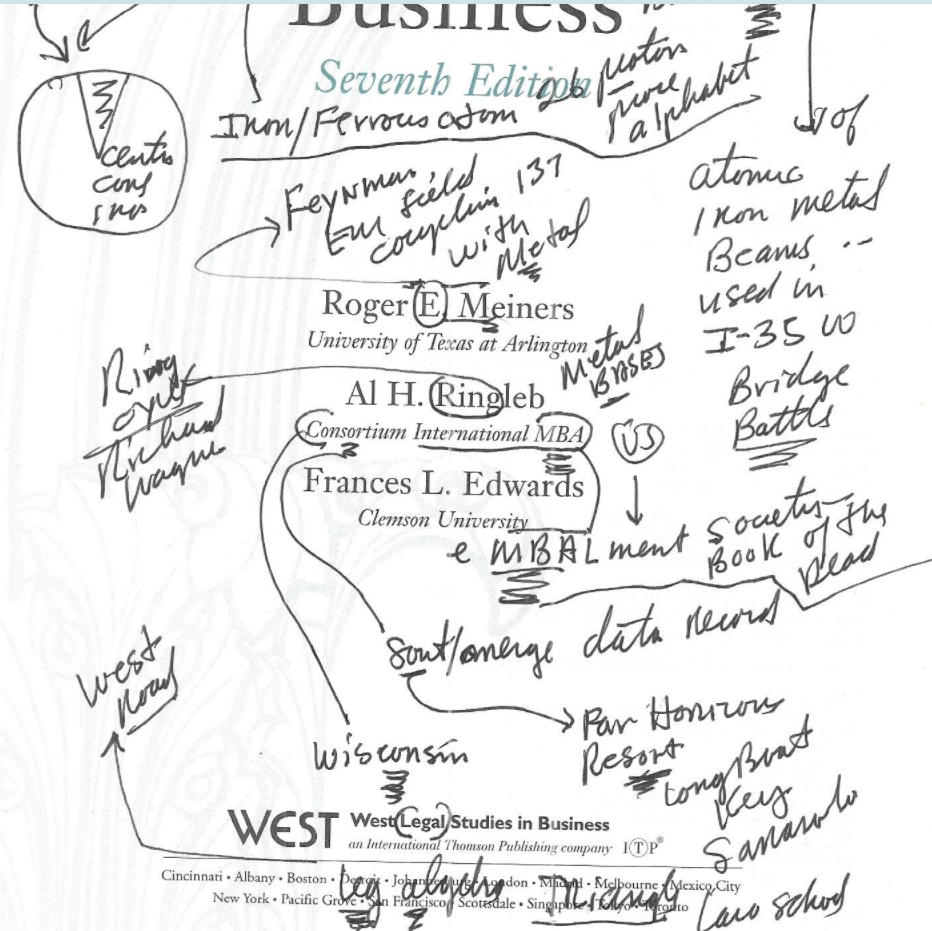 Business
Seventh Edition
26 proton
more
alphabet
Iron/Ferrous atom
centi
cons
Feynman
EM field
coupling 137
with
Metal
of
atomic
Iron metal
Beams ..
used in
I-35 W
Bridge
Battle
Roger E. Meiners
University of Texas at Arlington
Metal
BASES
Ring
Richard
Al H. Ringleb
Consortium International MBA
US
Frances L. Edwards
Clemson University
e MBALment
Book of the
Dead
Sort/merge data record
West
Road
Far Horizons
Resort
Long Boat
Key
Wisconsin
WEST West Legal Studies in Business
an International Thomson Publishing company ITP®
Cincinnati • Albany • Boston • Detroit • Johannesburg • London • Madrid • Melbourne • Mexico City
New York • Pacific Grove • San Francisco • Scottsdale • Singapore • Tokyo • Toronto
Leg
Triangle
Law school